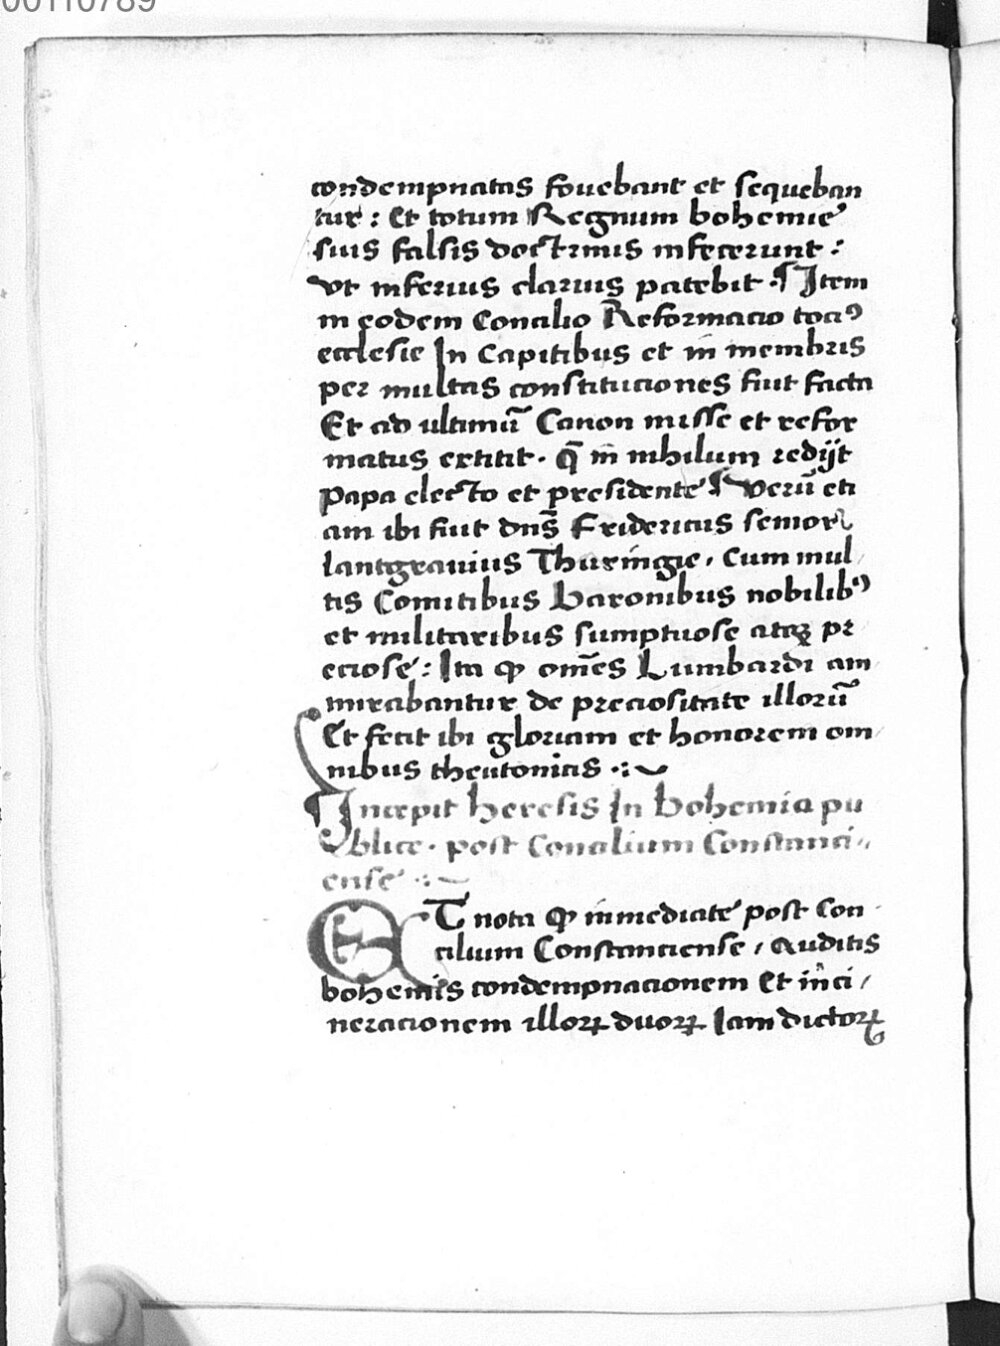 00110789
condempnatas fouebant et sequeban
tur : Et totum Regnum bohemie
suis falsis doctrinis infecerunt :
vt inferius clarius patebit . ¶ Item
in eodem Concilio Reformacio tociꝰ
ecclesie In Capitibus et in membris
per multas constituciones fiut facta
Et ad ultimū Canon misse et refor
matus extitit . q̄ in nihilum redijt
Papa electo et presidente ¶ Verū eti
am ibi fuit dn̄s Fridericus senior
lantgrauius Thuringie , Cum mul
tis Comitibus Baronibus nobilibꝰ
et militaribus sumptuose atqꝫ pr
eciose : Ita ꝙ om̄es Lumbardi am
mirabantur de preciositate illorū
Et fecit ibi gloriam et honorem om
nibus theutonicis .:~
¶ Incepit heresis In bohemia pu
blice . post Concilium Constanci
ense .:~
ET nota ꝙ inmediate post Con
cilium Constanciense , Auditis
bohemis condempnacionem Et inci
neracionem illoꝝ duoꝝ Iam dictoꝝ